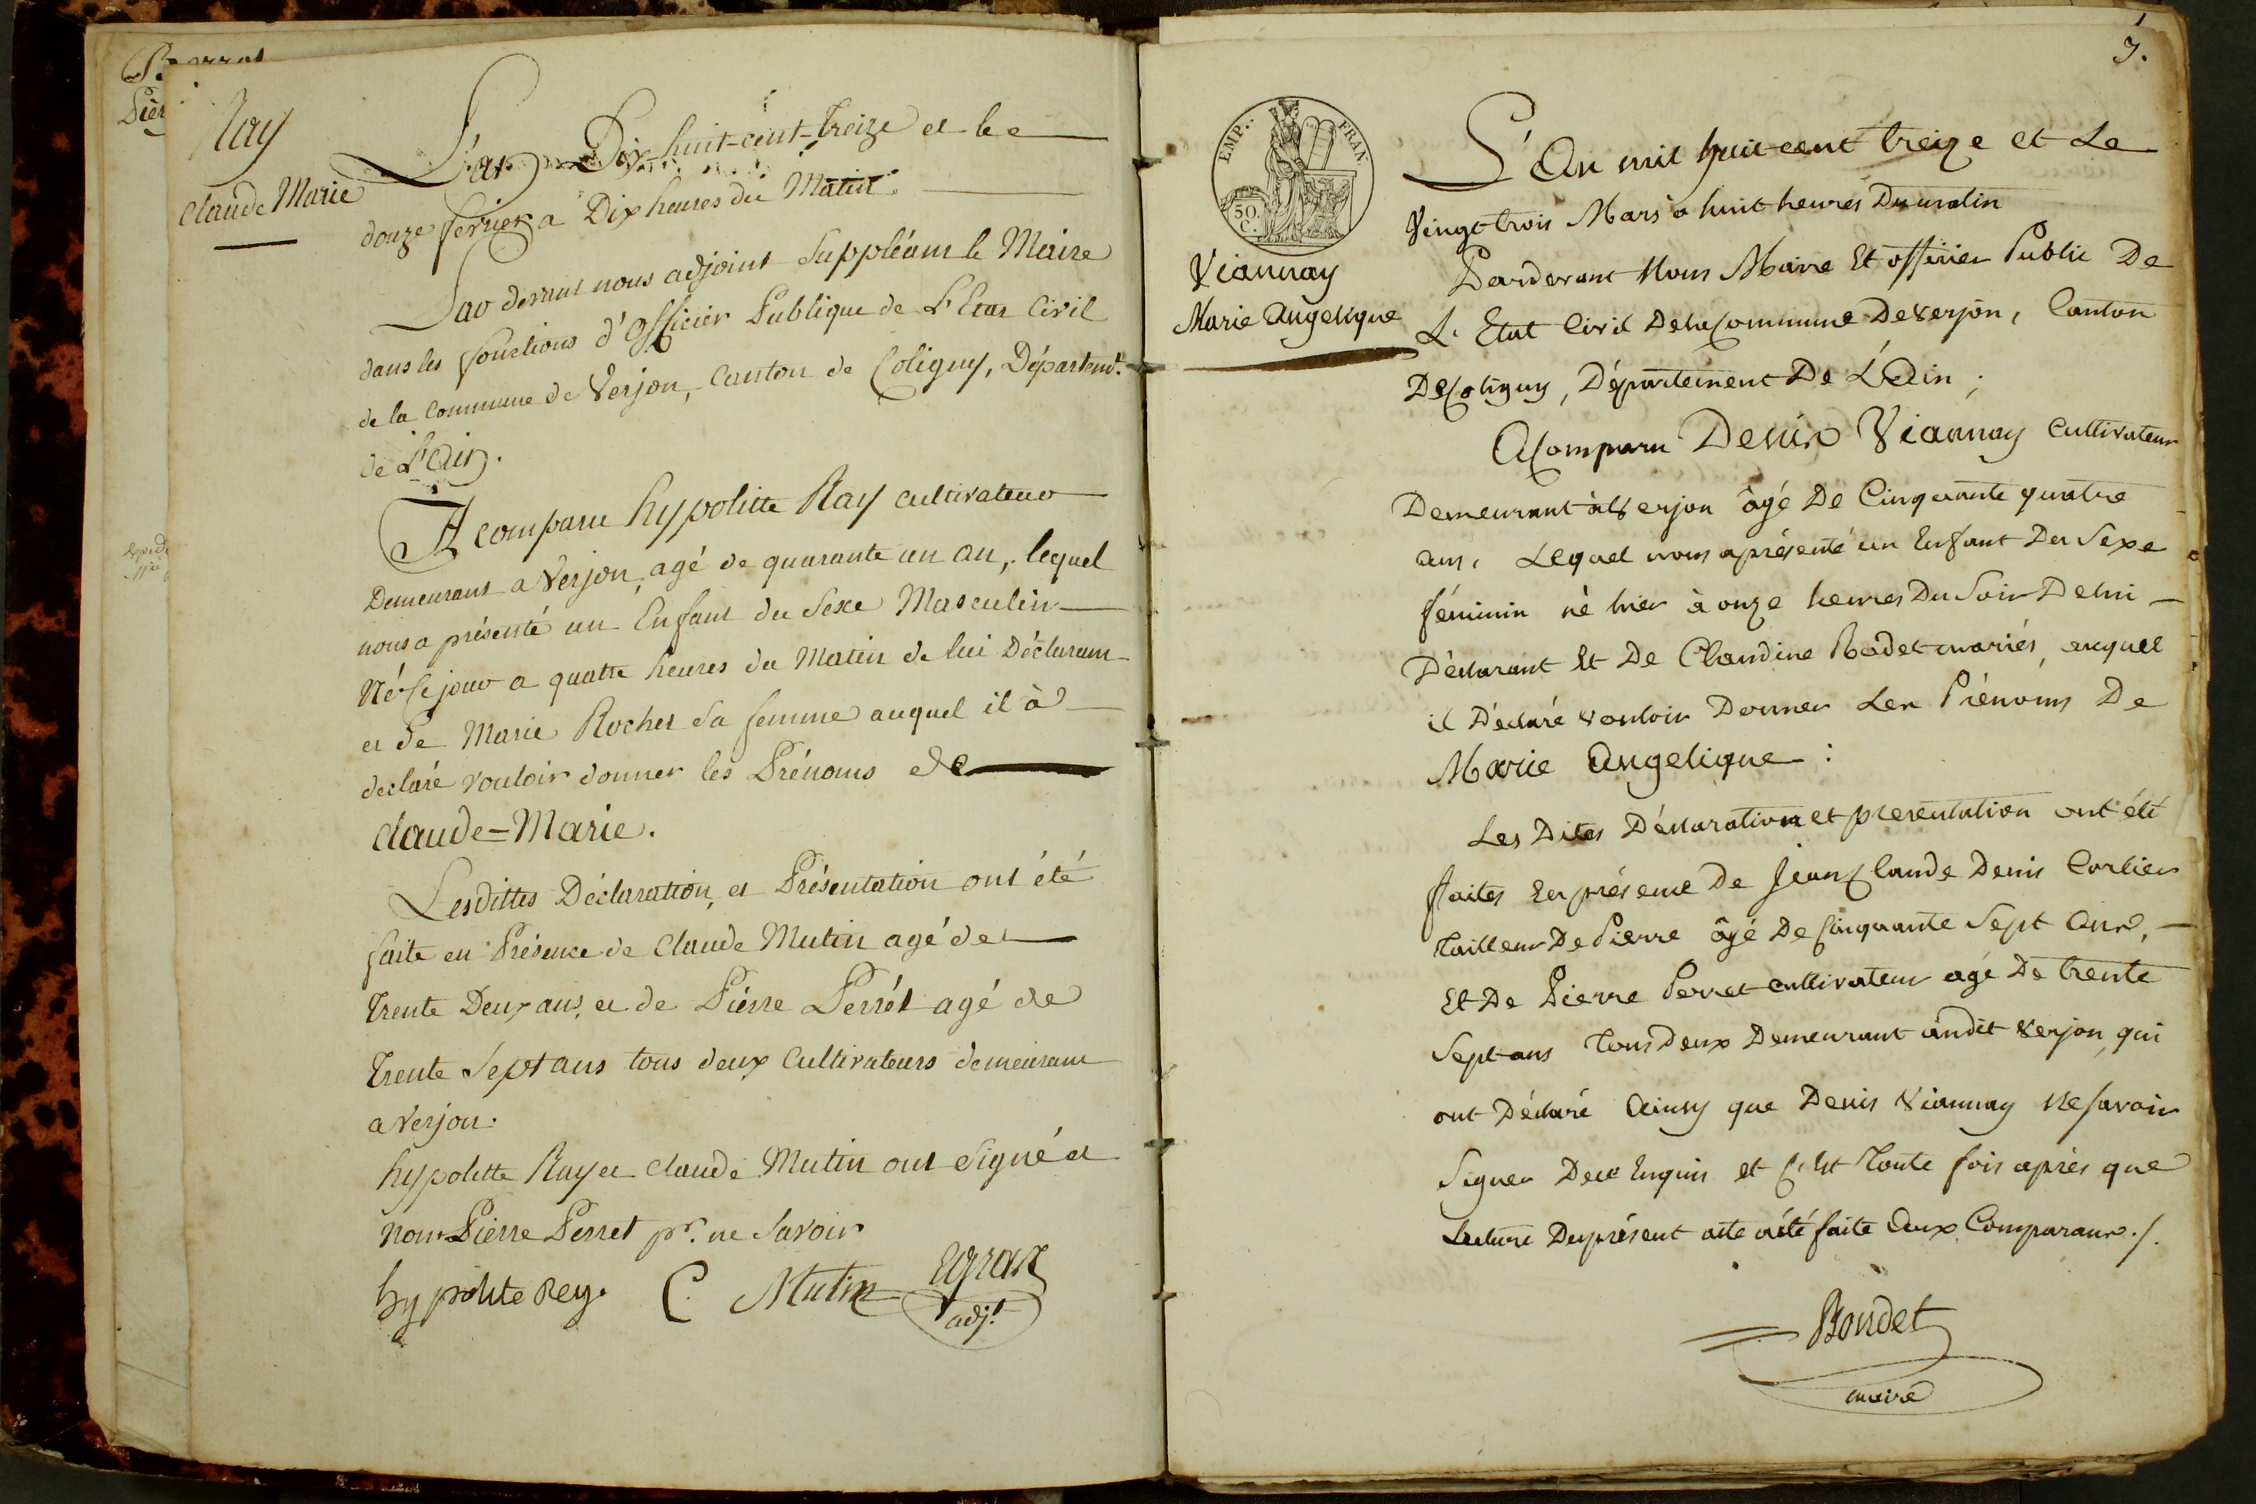 Perret
Pier
Ray
Claude Marie
L'an Dix-huit-cent-treize et le
douze fevrier a Dix heures du Matin.
Par devant nous adjoint Suppléant le Maire
dans les fonctions d'Officier Publique de L'Etat Civil
de la Commune de Verjon, Canton de Coligny, Départemt.
de L'Ain.
A comparu hypolitte Ray cultivateur
Demeurant a Verjon, agé de quarante un an, lequel
nous a présenté un Enfant du Sexe Masculin
Né ce jour a quatre heures du Matin de lui Déclarant
et de Marie Rochet sa femme auquel il à
declaré vouloir donner les Prénoms de
Claude=Marie.
Lesdittes Déclaration, et Présentation ont été
faite en Présence de Claude Mutin agé de
Trente Deux ans, et de Piérre Perrét agé de
Trente Sept ans tous deux Cultivateurs demeurant
a Verjon.
hypolitte Ray et Claude Mutin ont signé et
non Pierre Perret pr. ne Savoir
hypolite Rey. C. Mutin Egraz
adjt.
3.
EMP. FRAN.
50. C.
Viannay
Marie Angelique
L'An mil huit cent treize et Le
Vingt trois Mars à huit heures Du matin
Pardevant Nous Maire Et officier Public De
L'Etat Civil De la Commune De Verjon, Canton
De Coligny, Département De L'Ain;
A Comparu Denis Viannay Cultivateur
Demeurant à Verjon âgé De Cinquante quatre
ans, Lequel nous a présenté un Enfant Du Sexe
féminin né hier à onze heures Du Soir De lui
Déclarant Et De Claudine Bodet mariés, auquel
il Déclaré vouloir Donner Les Prénoms De
Marie Angelique :
Les Dites Déclaration et presentation ont été
faites En présence De Jean Claude Denis Corlier
Tailleur De Pierre âgé De Cinquante Sept Ans,
Et De Pierre Perret cultivateur agé De trente
Sept ans Tous Deux Demeurant audit Verjon, qui
ont Déclaré Ainsy que Denis Viannay Ne Savoir
Signer De ce Enquis et C'est Toute fois après que
Lecture Du présent acte a été faite Aux Comparans ./.
Bondet
maire